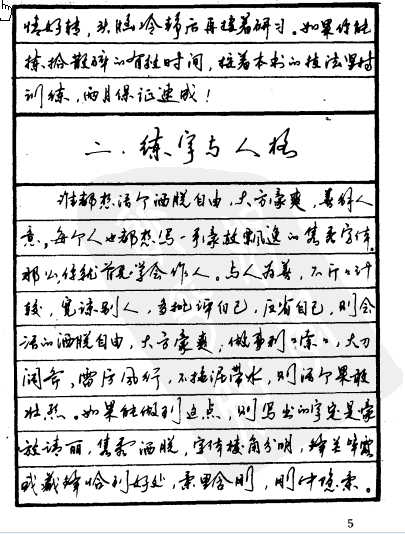 情好转，头脑冷静后再接着研习。如果你能
捡拾散碎的有效时间，按着本书的技法坚持
训练，两月保证速成！
二、练字与人格
谁都想活个洒脱自由，大方豪爽，善解人
意。每个人也都想写一手豪放飘逸的隽秀字体。
那么你就首先学会作人。与人为善，不斤斤计
较，宽谅别人，多批评自己，反省自己，则会
活的洒脱自由，大方豪爽，做事利“索”，大刀
阔斧，雷厉风行，不拖泥带水，则活个果敢
壮烈。如果能做到这点，则写出的字定是豪
放清丽，隽秀洒脱，字体棱角分明，锋芒毕露
或藏锋恰到好处，柔里含刚，刚中隐柔。
5